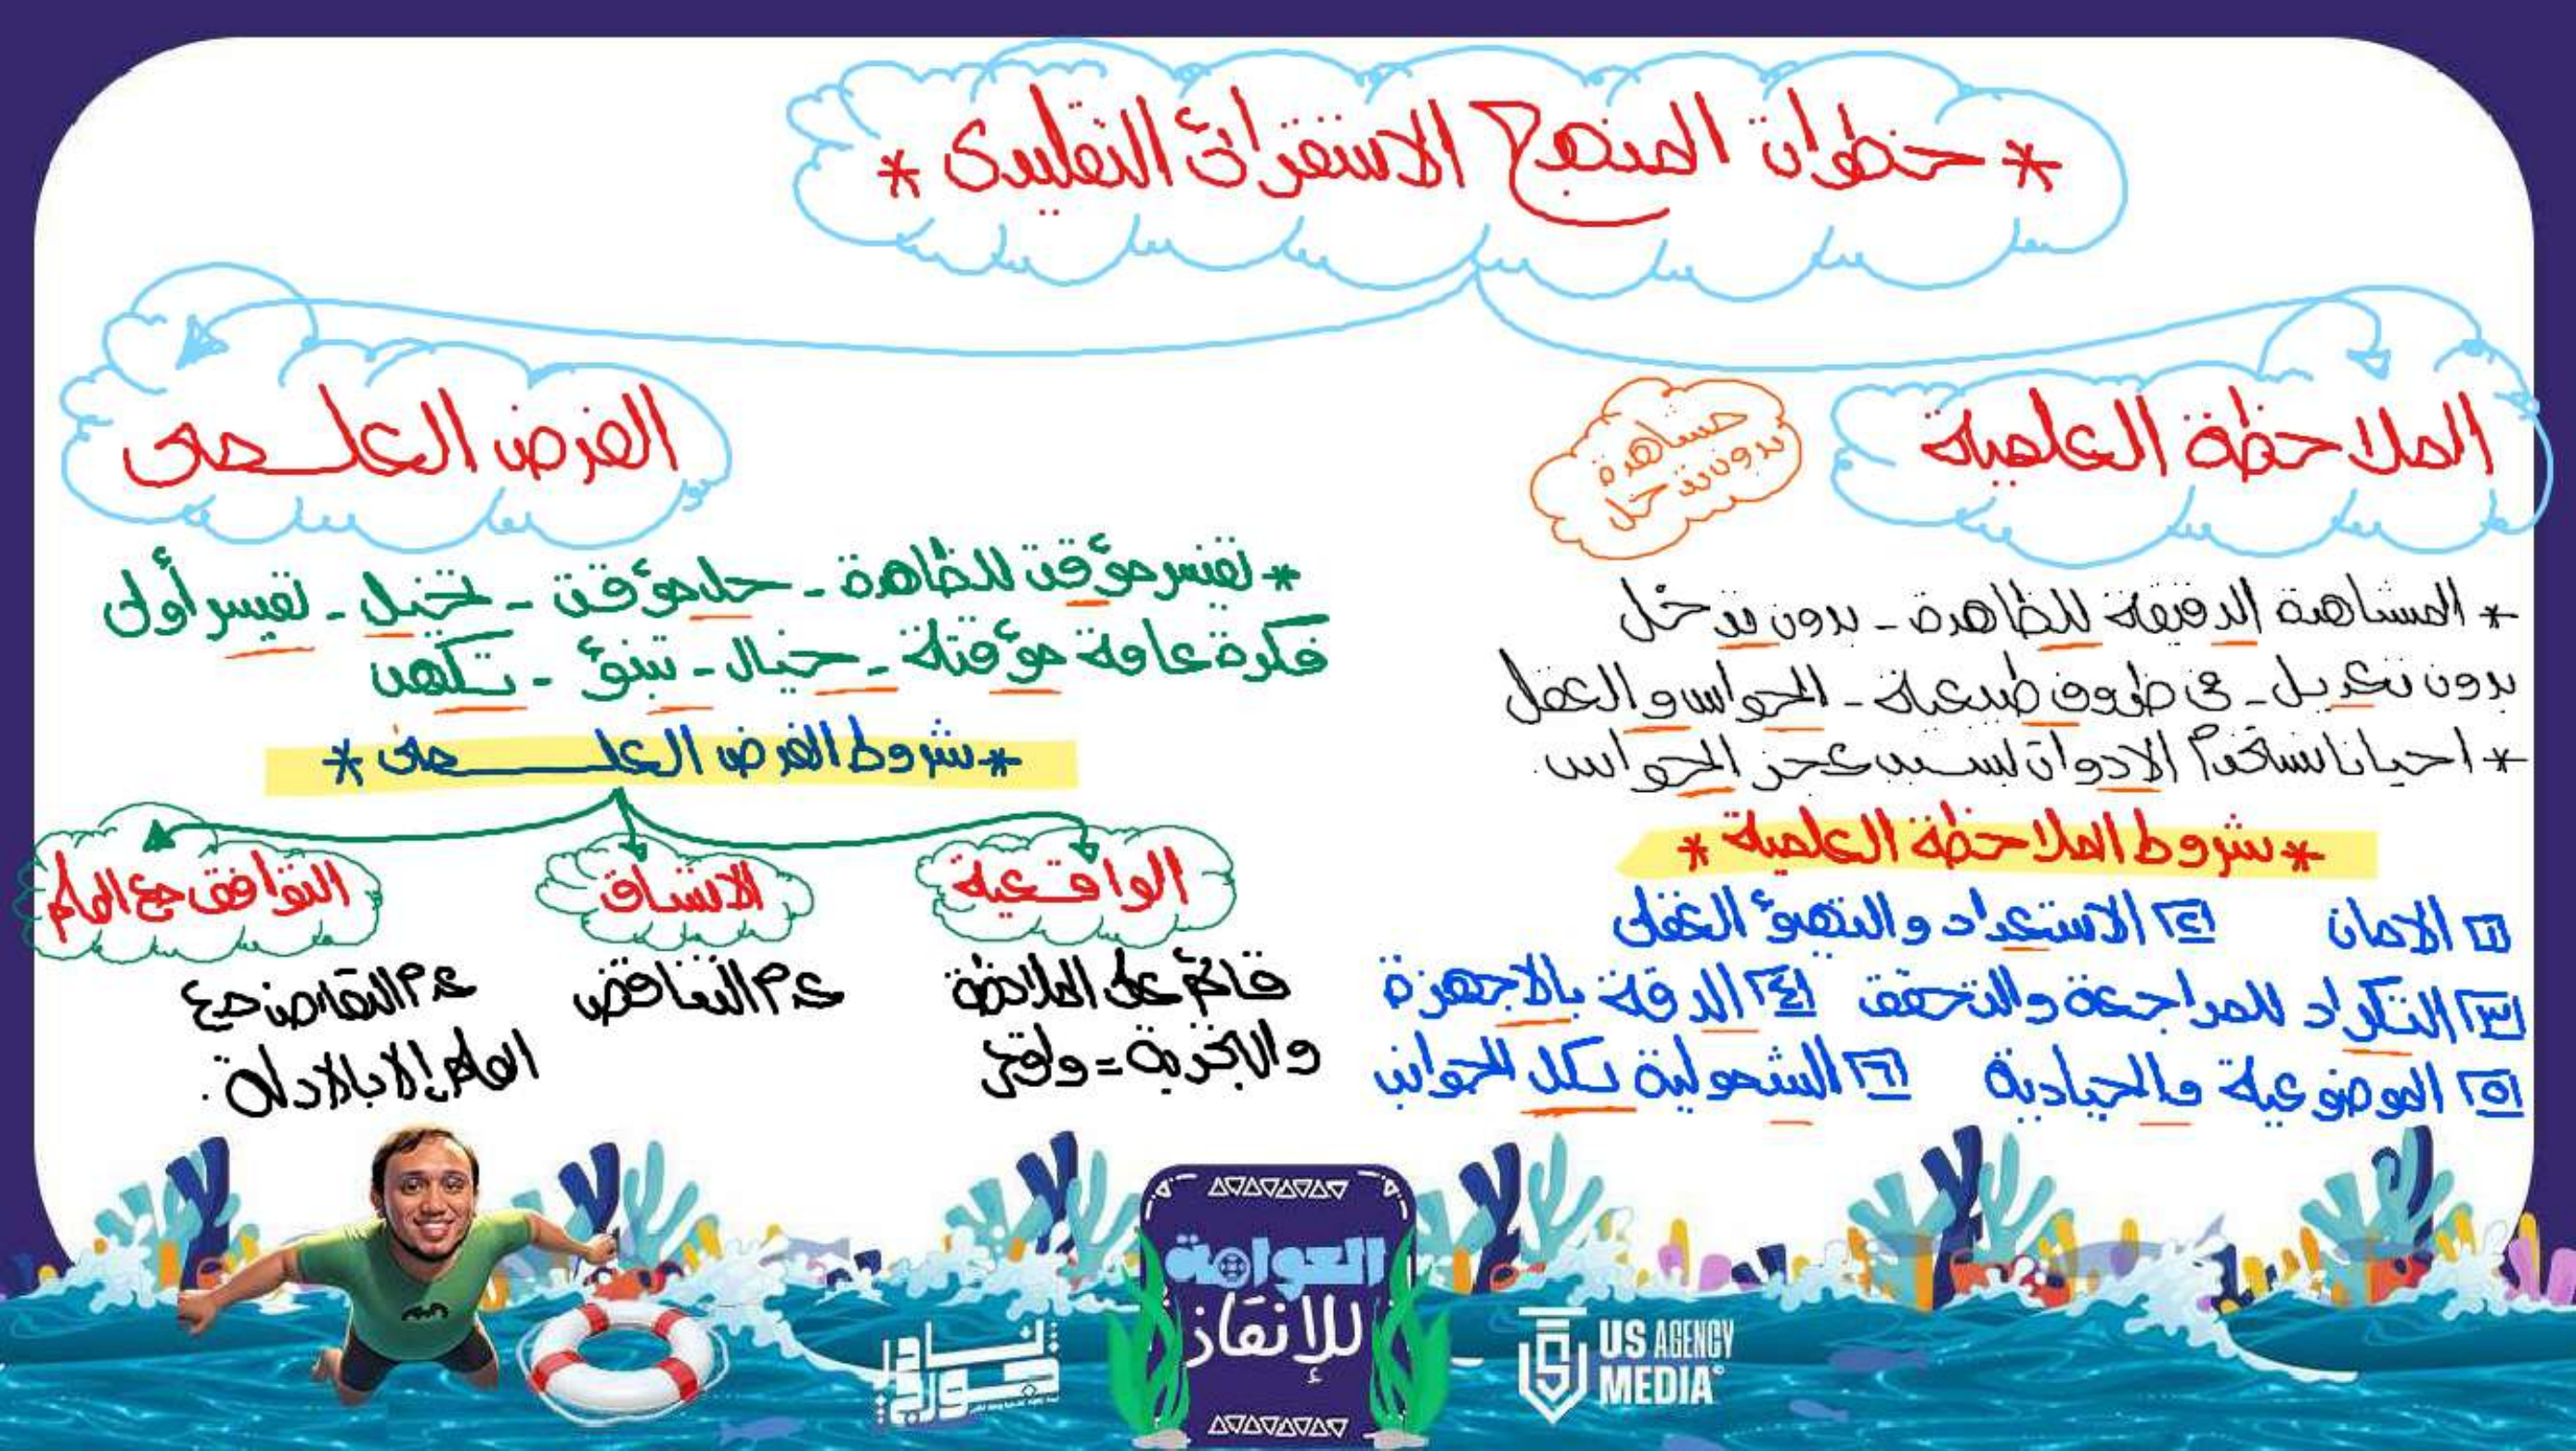 * خطوات المنهج الاستقرائى التقليدى *
الملاحظة العلمية
مشاهدة
بدون تدخل
* المشاهدة الدقيقة للظاهرة - بدون تدخل
بدون تعديل - فى ظروف طبيعية - الحواس والعقل
* احيانا نستخدم الادوات لسبب عجز الحواس.
* شروط الملاحظة العلمية *
١ الامان ٢ الاستعداد والتهيؤ العقلى
٣ التكرار للمراجعة والتحقق ٤ الدقة بالاجهزة
٥ الموضوعية والحيادية ٦ الشمولية لكل الجوانب
الفرض العلـمى
* تفسير مؤقت للظاهرة - حل مؤقت - تخيل - تفسير أولى
فكرة عامة مؤقتة - خيال - تنبؤ - تكهن
* شروط الفرض العلـــمى *
الواقعية
قائم على الملاحظة
والتجربة = واقعى
الاتساق
عدم التناقض
التوافق مع العلم
عدم التعارض مع
العلم إلا بالادلة.
العوامة
للإنقاذ
US AGENCY
MEDIA